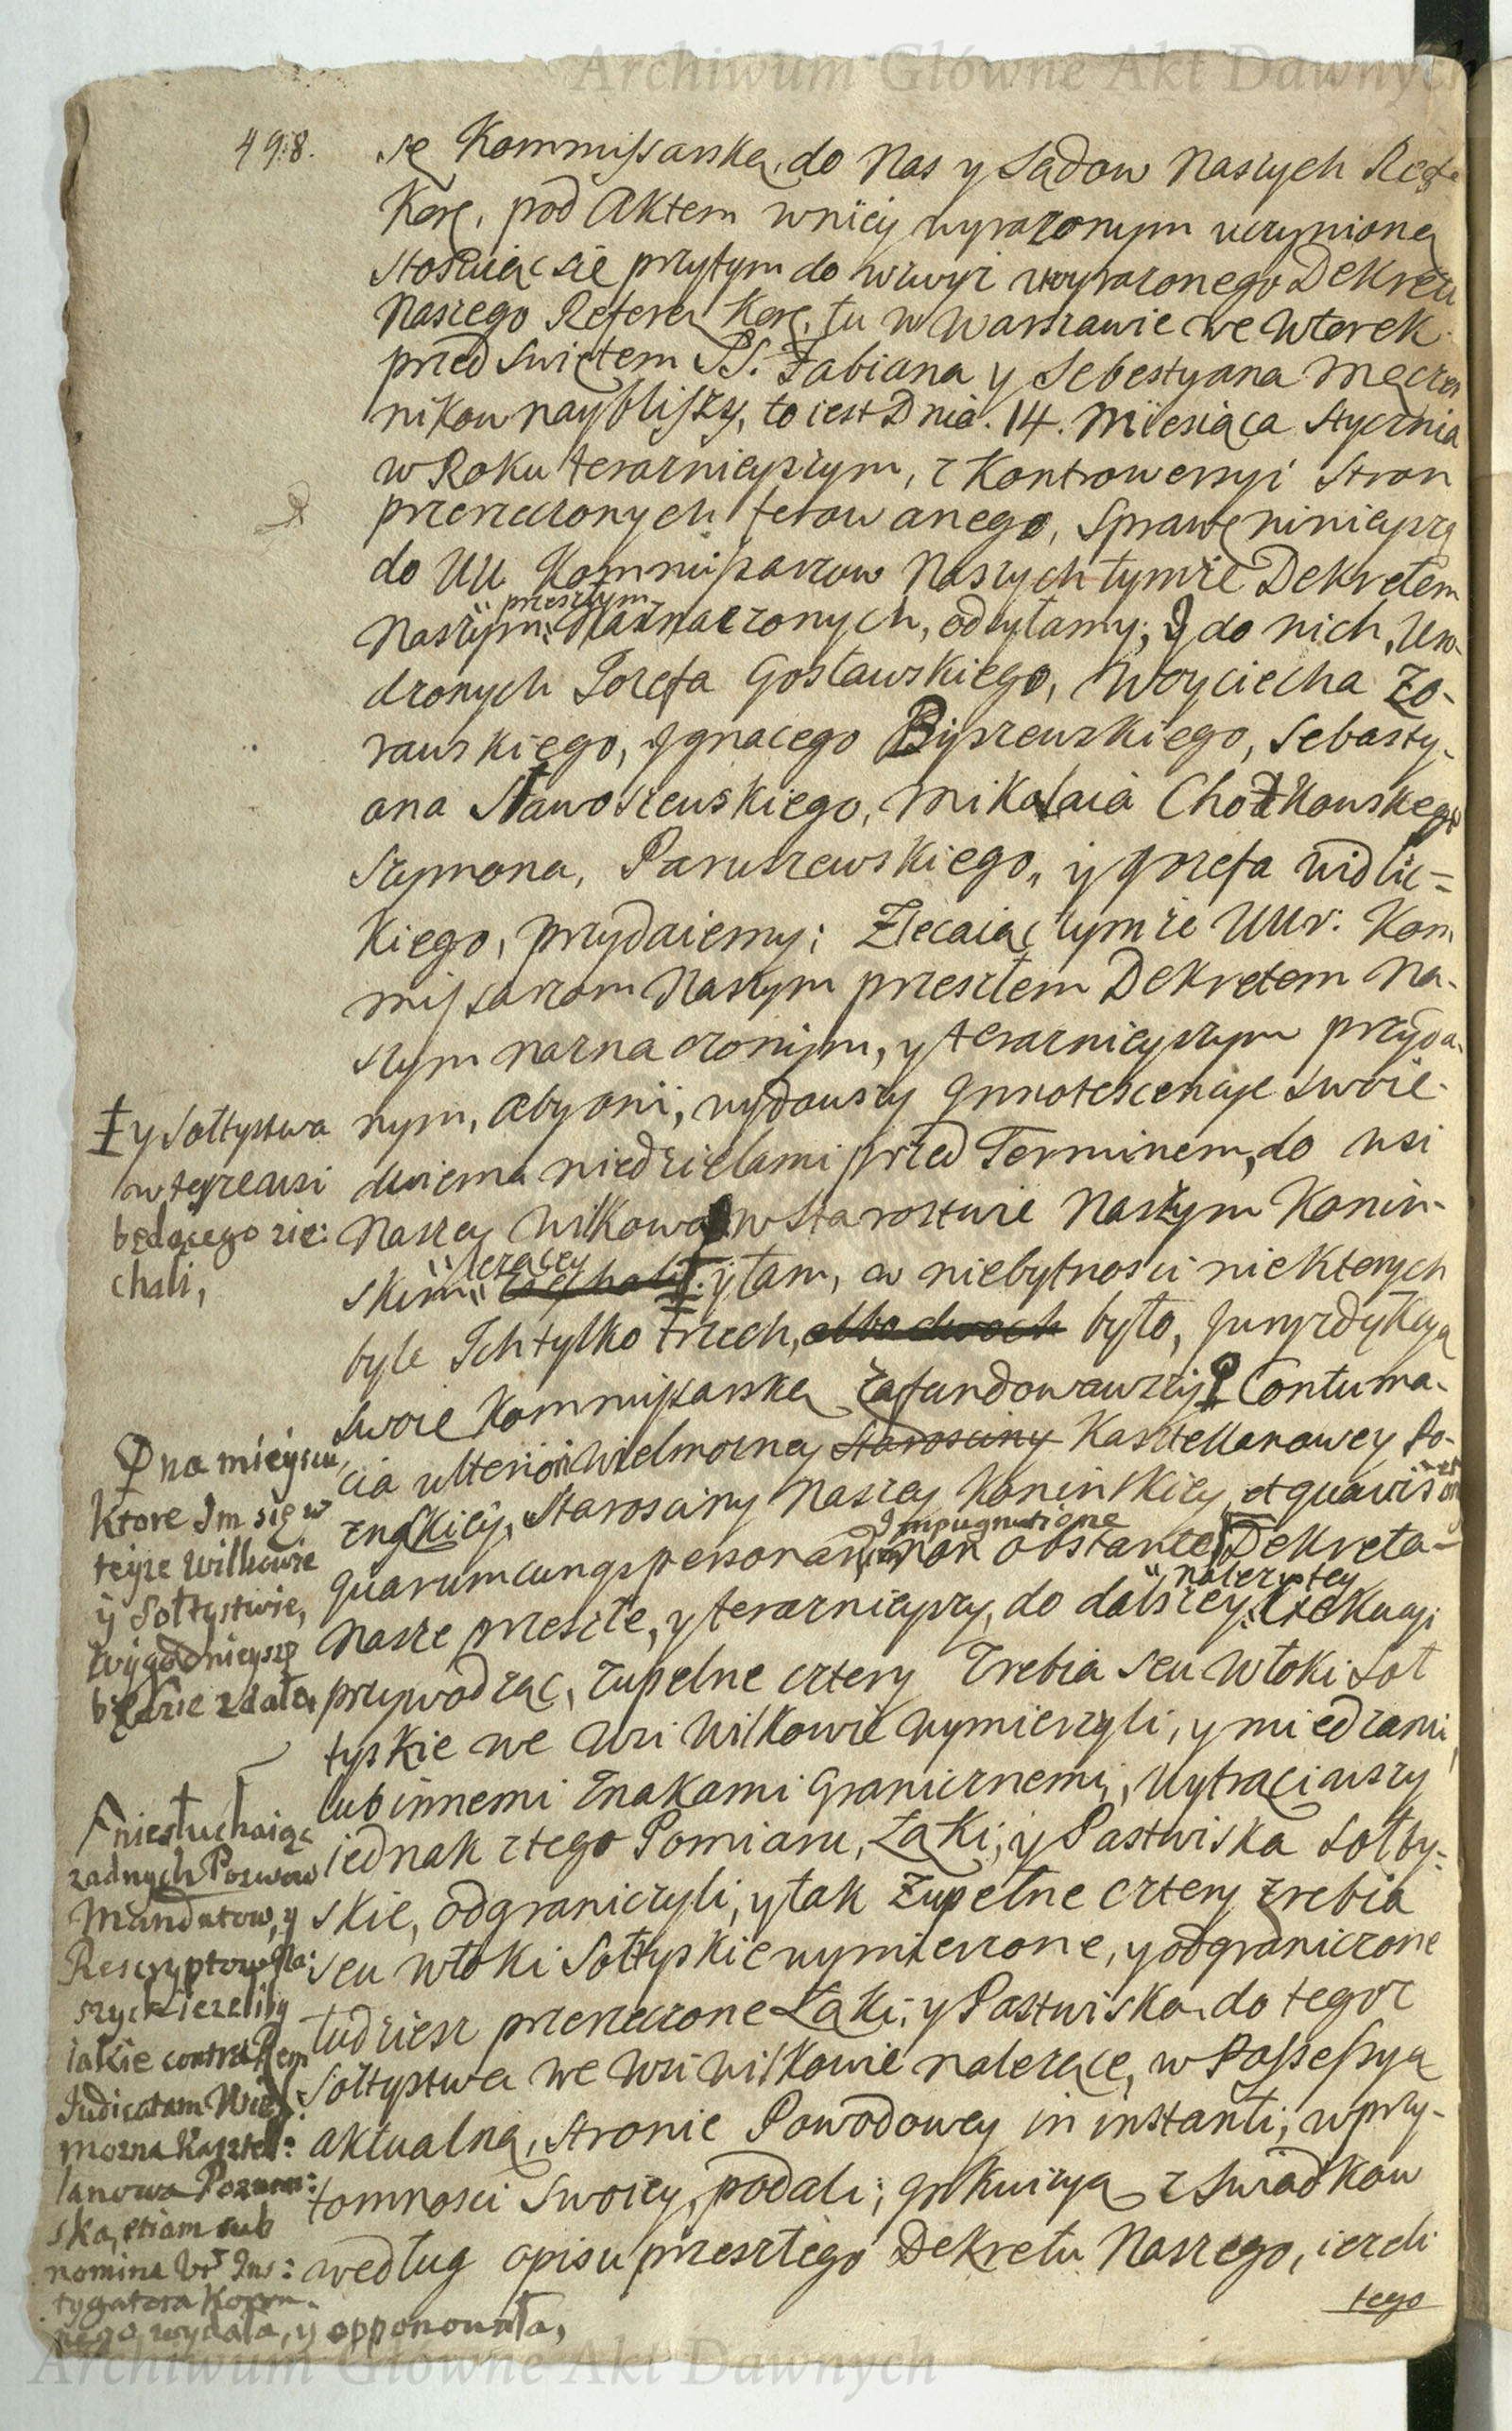 Archiwum Główne Akt Dawnych
498.
sę Kommissarską do Nas y Sądow Naszych
Kore, pod Aktem wniey wyrazonym uczynioną
stosuiąc się przytym do wzwyż wyrazonego Dekretu
Naszego Referen Kore, tu w Warszawie we Wtorek
przed Swiętem SS. Fabiana y Sebestyana Męczen
nikow nayblizszy, to iest Dnia. 14. Miesiąca Stycznia
w Roku teraznieyszym, z Kontrowersyi Stron
przerzeczonych ferowanego, Sprawę ninieyszą
do UU Kommissarzow Naszych tymże Dekretem
przeszłym
Naszym Naznaczonych, odsyłamy; I do nich, Uro-
dzonych Jozefa Gosławskiego, Woyciecha Zo-
rawskiego, Ignacego Byszewskiego, Sebasty-
ana Sławoszewskiego, Mikołaia Chodkowskego
Szymona, Paruszewskiego,, y Jozefa Widlic=
kiego, przydaiemy; Zlecaiąc tymże UUr: Kom
missarzom Naszym przeszłem Dekretem Na-
szym naznaczonym, y teraznieyszym przyda-
nym, aby oni, wydawszy Innotescencye swoie
dwiema niedzielami przed Terminem, do wsi
Naszey Wilkowa w Starostwie Naszym Konin-
lezącey
skim, zjechali y tam, w niebytności niektorych
byle Ich tylko trzech, albo dwoch było, Juryzdykcyą
swoie Kommissarską zafundowawszy Contuma-
cia ulteriori Wielmozney Starosciny Kasztellanowey Po-
znąskiey, Starosciny Naszey Koninskiey, et quavis
Impugnatione
quarumcunq personarum non obstante, Dekreta
nalezytey
Nasze przeszłe, y terazniejszy, do dalszey Exekucyi
przywodząc, zupełne cztery Zrebia seu Włoki Soł
tyskie we Wsi Wilkowie wymierzyli, y miedzami,
lub innemi Znakami Granicznemi, wytrąciwszy
iednak z tego Pomiaru, Łąki, y Pastwiska Sołty-
skie, odgraniczyli, y tak Zupełne cztery zrebia
seu włoki Sołtyskie wymierzone, y odgraniczone
tudziesz przerzeczone Łąki, y Pastwiska do tegoz
Sołtystwa we Wsi Wilkowie nalezące, w Possessyą
aktualną, Stronie Powodowey in instanti, w przy-
tomnosci Swoiey, podali; Inkwizyą z Swiadkow
według opisu przeszłego Dekretu Naszego, iezeli
tego
y Sołtystwa
w teyze wsi
będącego zie:
chali,
na mieyscu,
ktore Im się w
teyze Wilkowie
y Sołtystwie,
wygodnieysze
będzie zdało
niesłuchaiąc
zadnych Pozwow
Mandatow, y
Rescryptow Na:
szych iezeliby
iakie contra Rem
Iudicatam Wiel:
mozna Kasztel:
lanowa Poznan:
ska, etiam sub
nomine Ur Ins:
tygatora Koron-
nego wydała, y opponowała,
Archiwum Główne Akt Dawnych